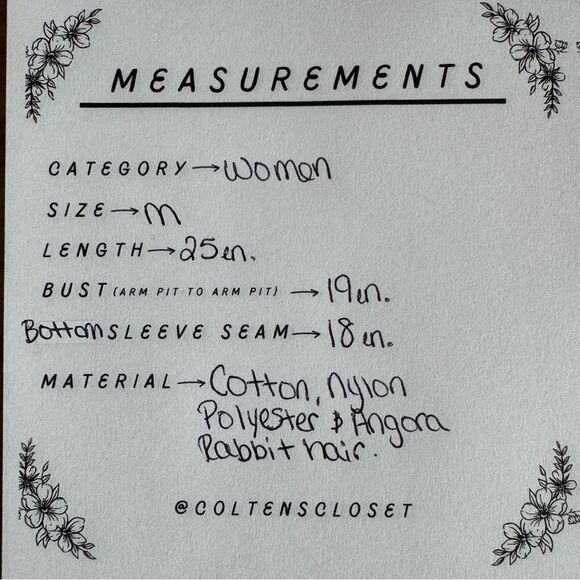 MEASUREMENTS
CATEGORY → Women
SIZE → M
LENGTH → 25 in.
BUST (ARM PIT TO ARM PIT) → 19 in.
Bottom SLEEVE SEAM → 18 in.
MATERIAL → Cotton, nylon
Polyester & Angora
Rabbit hair.
@COLTENSCLOSET